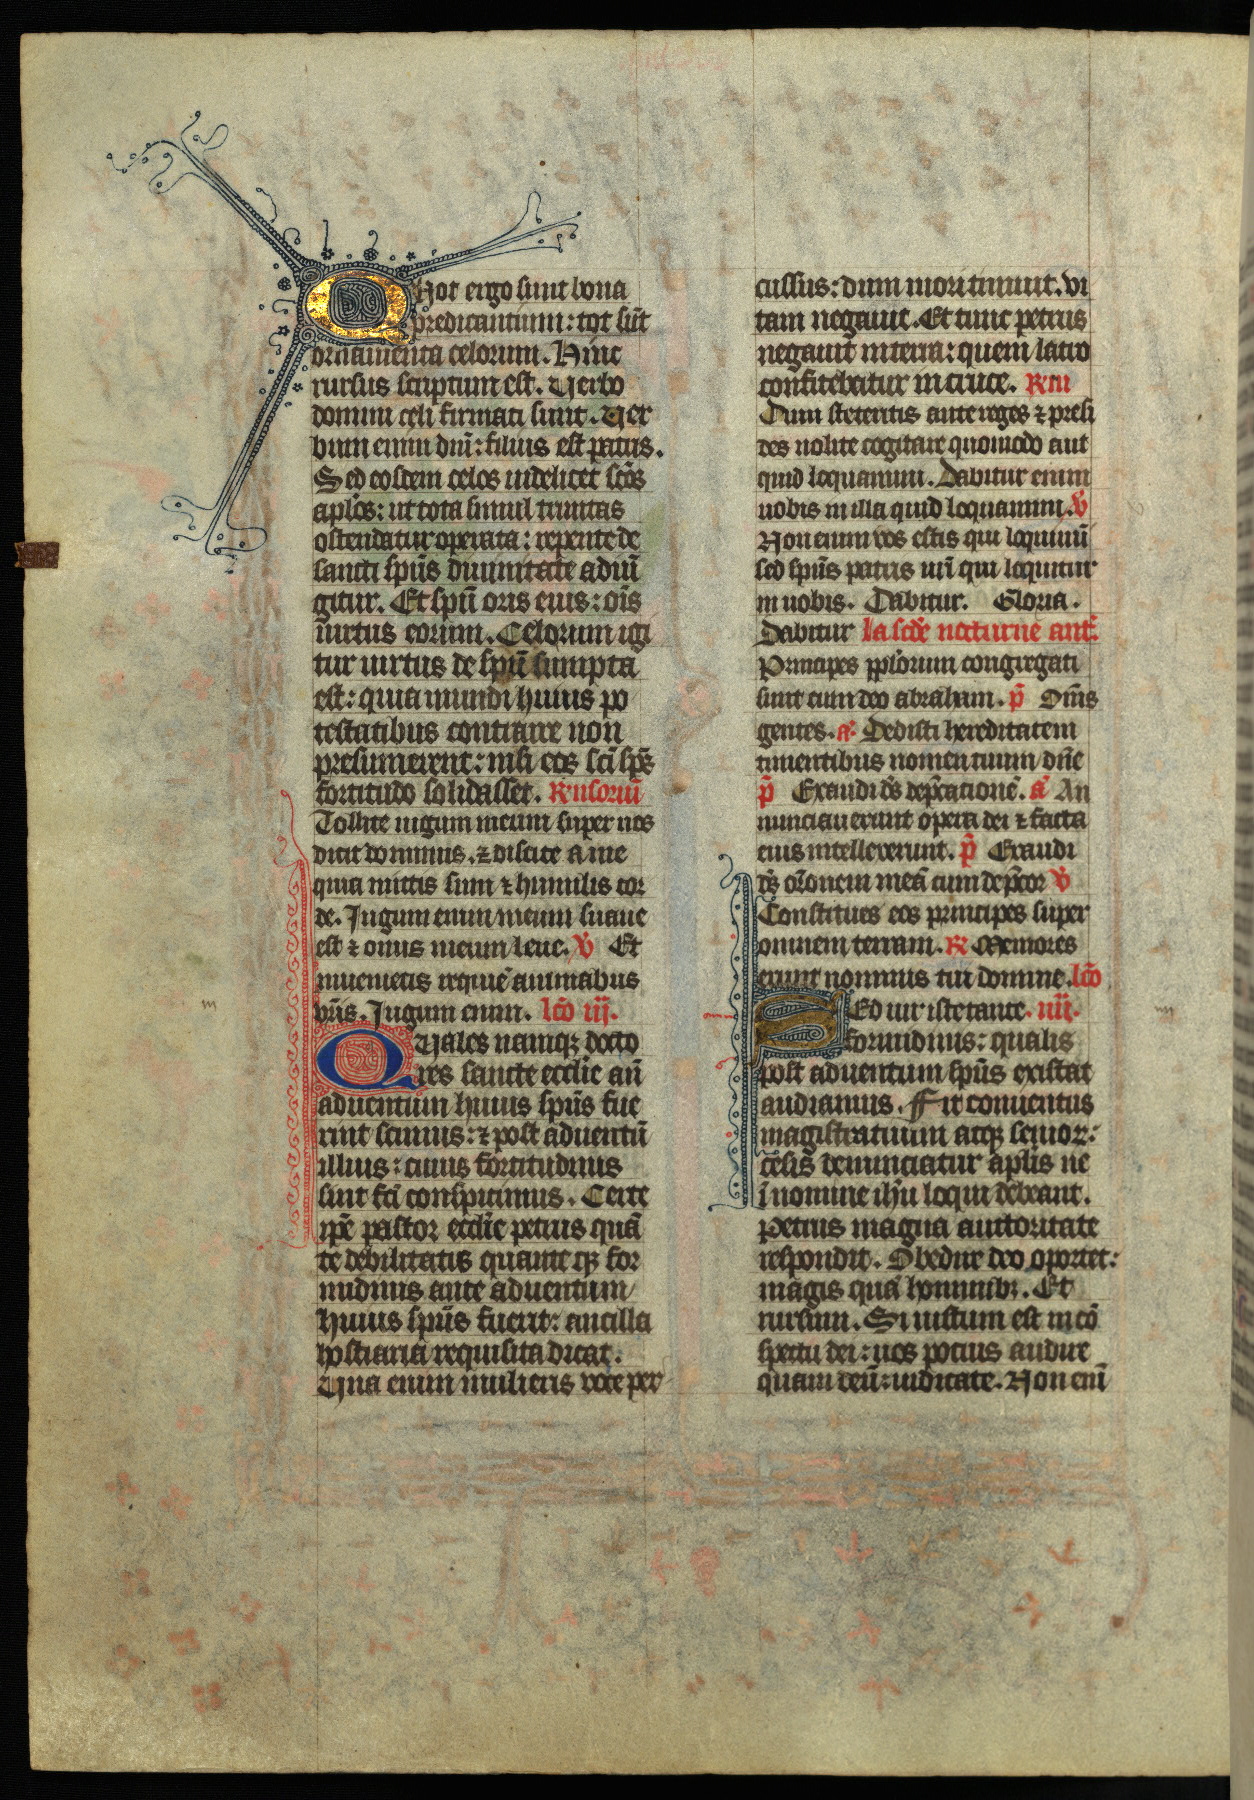 Quot ergo sunt bona
predicantium: tot sūt
ornamenta celorum. Hinc
rursus scriptum est. Verbo
domini celi firmati sunt. Ver
bum enim dnī: filius est patris.
Sed eosdem celos videlicet scōs
aplōs: ut tota simul trinitas
ostendatur operata: repente de
sancti spūs diuinitate adiū
gitur. Et spū oris eius: oīs
uirtus eorum. Celorum igi
tur uirtus de spū sumpta
est: quia mundi huius po
testatibus contraire non
presumerent: nisi eos scī spūs
fortitudo solidasset. Rn̄soriū
Tollite iugum meum super uos
dicit dominus. ⁊ discite a me
quia mittis sum ⁊ humilis cor
de. Jugum enim meum suaue
est ⁊ onus meum leue. V̄ Et
inuenietis requiē animabus
vrīs. Jugum enim. lcō iij.
Quales namqꝫ docto
res sancte ecclīe an̄
aduentum huius spūs fue
rint scimus: ⁊ post aduentū
illius: cuius fortitudinis
sint fcī conspicimus. Certe
ipē pastor ecclīe petrus quā
te debilitatis quante qꝫ for
midinis ante aduentum
huius spūs fuerit: ancilla
hostiaria requisita dicat.
Una enim mulieris voce per
cussus: dum mori timuit. vi
tam negauit. Et tunc petrus
negauit in terra: quem latro
confitebatur in cruce. R̄m
Dum steteritis ante reges ⁊ presi
des nolite cogitare quomodo aut
quid loquamini. Dabitur enim
uobis in illa quid loquamini. V̄
Non enim vos estis qui loquimī
sed spūs patris urī qui loquitur
in uobis. Dabitur. Gloria.
Dabitur Ia scd̄e nocturne ant̄.
Principes pplōrum congregati
sunt cum deo abraham. p̄ Omīs
gentes. a Dedisti hereditatem
timentibus nomen tuum dn̄e
p̄ Exaudi ds̄ dep̄cationē. a An
nunciauerunt opera dei ⁊ facta
eius intellexerunt. p̄ Exaudi
ds̄ orōnem meā cum dep̄cor V̄
Constitues eos principes super
omnem terram. R̄ Memores
erunt nominis tui domine. lcō
Sed uir iste tante. iiij.
formidinis: qualis
post aduentum spūs existat
audiamus. Fit conuentus
magistratuum atqꝫ senior:
cesis denunciatur aplīs ne
ī nomine ihū loqui debeant.
Petrus magna auctoritate
respondit. Obedire deo oportet:
magis quā hominibꝫ. Et
rursum. Si iustum est in cō
spectu dei: uos potius audire
quam deū: iudicate. Non enī